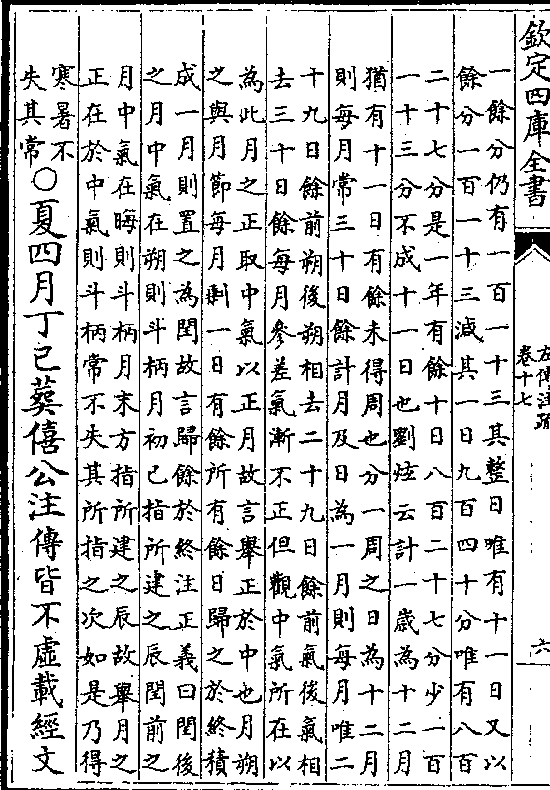 欽定四庫全書
左傳注疏
卷十七
六
一餘分仍有一百一十三其整日唯有十一日又以
餘分一百一十三減其一日九百四十分唯有八百
二十七分是一年有餘十日八百二十七分少一百
一十三分不成十一日也劉炫云計一歲為十二月
猶有十一日有餘未得周也分一周之日為十二月
則每月常三十日餘計月及日為一月則每月唯二
十九日餘前朔後朔相去二十九日餘前氣後氣相
去三十日餘每月參差氣漸不正但觀中氣所在以
為此月之正取中氣以正月故言舉正於中也月朔
之與月節每月剩一日有餘所有餘日歸之於終積
成一月則置之為閏故言歸餘於終注正義曰閏後
之月中氣在朔則斗柄月初已指所建之辰閏前之
月中氣在晦則斗柄月末方指所建之辰故舉月之
正在於中氣則斗柄常不失其所指之次如是乃得
寒暑不
失其常
○夏四月丁巳葬僖公注傳皆不虛載經文